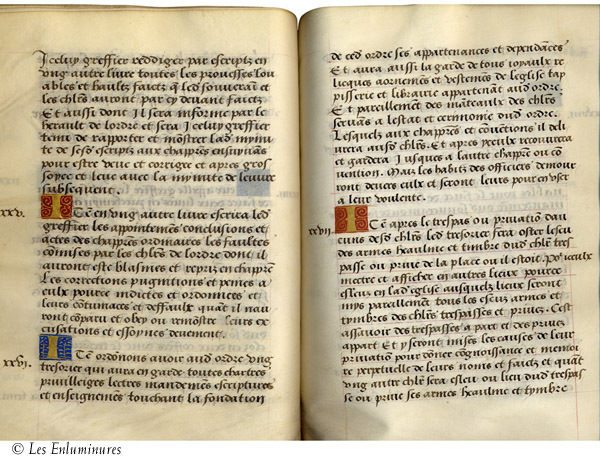 Icelluy greffier reddiger par escriptz en
vng autre livre toutes les prouesses lou
ables et haultz faictz q̃ led̃ souverain et
les chl̃rs auront par cy devant faictz
Et aussi dont il sera informe par le
herault de lordre et sera Icelluy greffier
tenu de rapporter et mõstrer lad̃ mynu
te de sesd̃ escripz aux chapp̃res ensuivans
pour estre veue et corrigee et apres gros
soyee et leue avec la mynute de leuvre
subsequent.
xxv.
Itẽ en vng autre livre escrira led̃
greffier les appointemẽs conclusions et
actes des chapp̃res ordinaires les faultes
cõmises par les chl̃rs de lordre dont il
auront este blasmes et repriz en chapp̃re
Les corrections pugnitions et peines a
eulx pource indictes et ordonnees et
leurs cõtumaces et deffaulx quãt il nau
ront cõparu et obey ou remõstre leurs ex
cusations et essoynes deuement.
xxvi.
Itẽ ordõnons avoir aud̃ ordre vng
tresorier qui aura en garde toutes chartres
privilleiges lectres mandemẽs escriptures
et enseignemẽs touchant la fondation
de ced̃ ordre ses appartenances et dependãces
Et aura aussi la garde de tous ioyaulx re
licques aornemẽs et vestemẽs de leglise tap
pisserie et librairie appartenãt aud̃ ordre.
Et pareillement des mãteaulx des chl̃rs
servãs a lestat et cerimonie dud̃ ordre.
Lesquelz aux chapp̃res et cõvẽtions il deli
vrera ausd̃ chl̃rs. Et apres yceulx recouvrera
et gardera Iusques a lautre chapp̃re ou cõ
vention. Mais les habits des officiers demour
ront devers eulx et seront leurs pour en user
a leur voulente.
xxvii.
Itẽ apres le trespas ou privatiõ dau
cuns desd̃ chl̃rs led̃ tresorier fera oster lescu
des armes heaulme et timbre dud̃ chl̃r tres
passe ou prive de la place ou il estoit. Po᷑ iceulx
mectre et afficher en autres lieux pource
esleuz en lad̃ eglise ausquelz lieux seront
mys pareillement tous les escuz armes et
tymbres des chl̃rs trespasses et privez. Cest
assavoir des trespasses a part et des privez
appart Et y seront mises les causes de leur
privatiõ pour dõner cognoissance et memoi
re perpetuelle de leurs noms et faictz et quãt
vng autre chl̃r sera esleu ou lieu dud̃ trespas
se ou prive ses armes heaulme et tymbre
© Les Enluminures